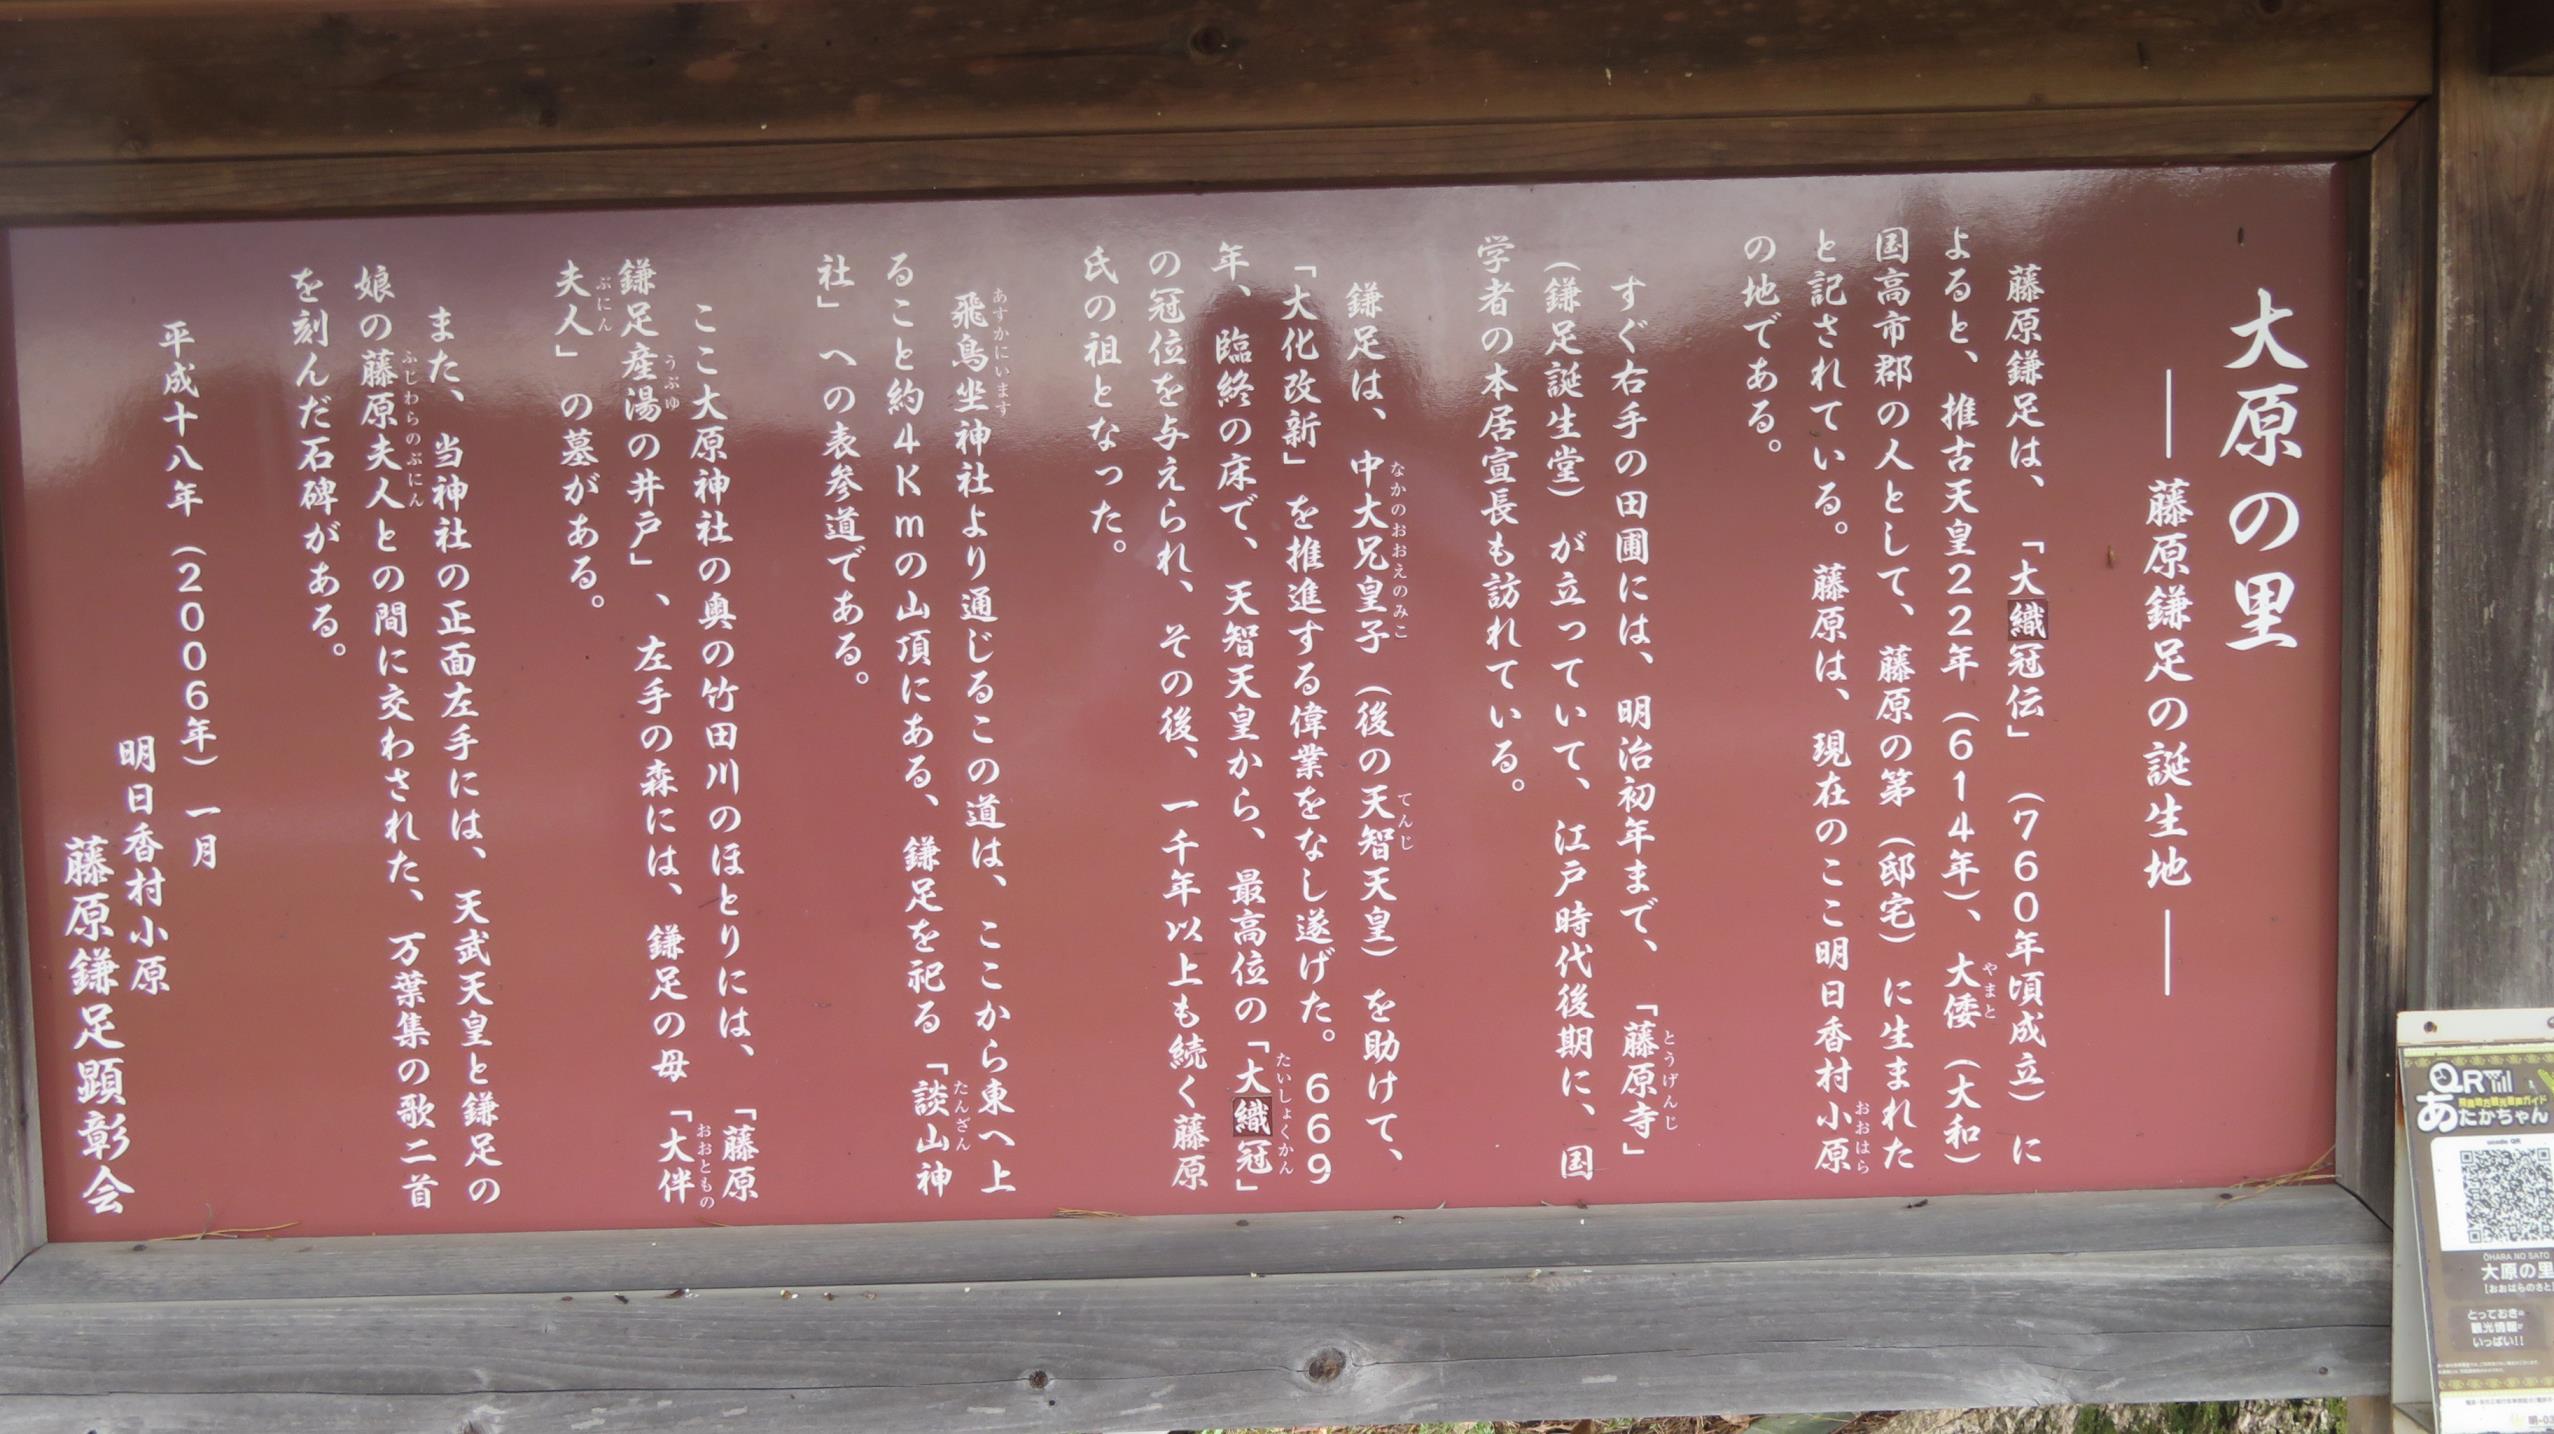 大原の里
― 藤原鎌足の誕生地 ―
藤原鎌足は、「大織冠伝」(760年頃成立)に
よると、推古天皇22年(614年)、大倭(大和)
やまと
国高市郡の人として、藤原の第(邸宅)に生まれた
と記されている。藤原は、現在のここ明日香村小原
おおはら
の地である。
すぐ右手の田圃には、明治初年まで、「藤原寺」
とうげんじ
(鎌足誕生堂)が立っていて、江戸時代後期に、国
学者の本居宣長も訪れている。
鎌足は、中大兄皇子(後の天智天皇)を助けて、
なかのおおえのみこ
てんじ
「大化改新」を推進する偉業をなし遂げた。669
年、臨終の床で、天智天皇から、最高位の「大織冠」
たいしょくかん
の冠位を与えられ、その後、一千年以上も続く藤原
氏の祖となった。
飛鳥坐神社より通じるこの道は、ここから東へ上
あすかにいます
ること約4Kmの山頂にある、鎌足を祀る「談山神
たんざん
社」への表参道である。
ここ大原神社の奥の竹田川のほとりには、「藤原
鎌足産湯の井戸」、左手の森には、鎌足の母「大伴
うぶゆ
おおともの
夫人」の墓がある。
ぶにん
また、当神社の正面左手には、天武天皇と鎌足の
娘の藤原夫人との間に交わされた、万葉集の歌二首
ふじわらのぶにん
を刻んだ石碑がある。
平成十八年(2006年)一月
明日香村小原
藤原鎌足顕彰会
QR
飛鳥地方観光音声ガイド
あたかちゃん
ucode QR
ŌHARA NO SATO
大原の里
[おおはらのさと]
とっておきの
観光情報が
いっぱい!!